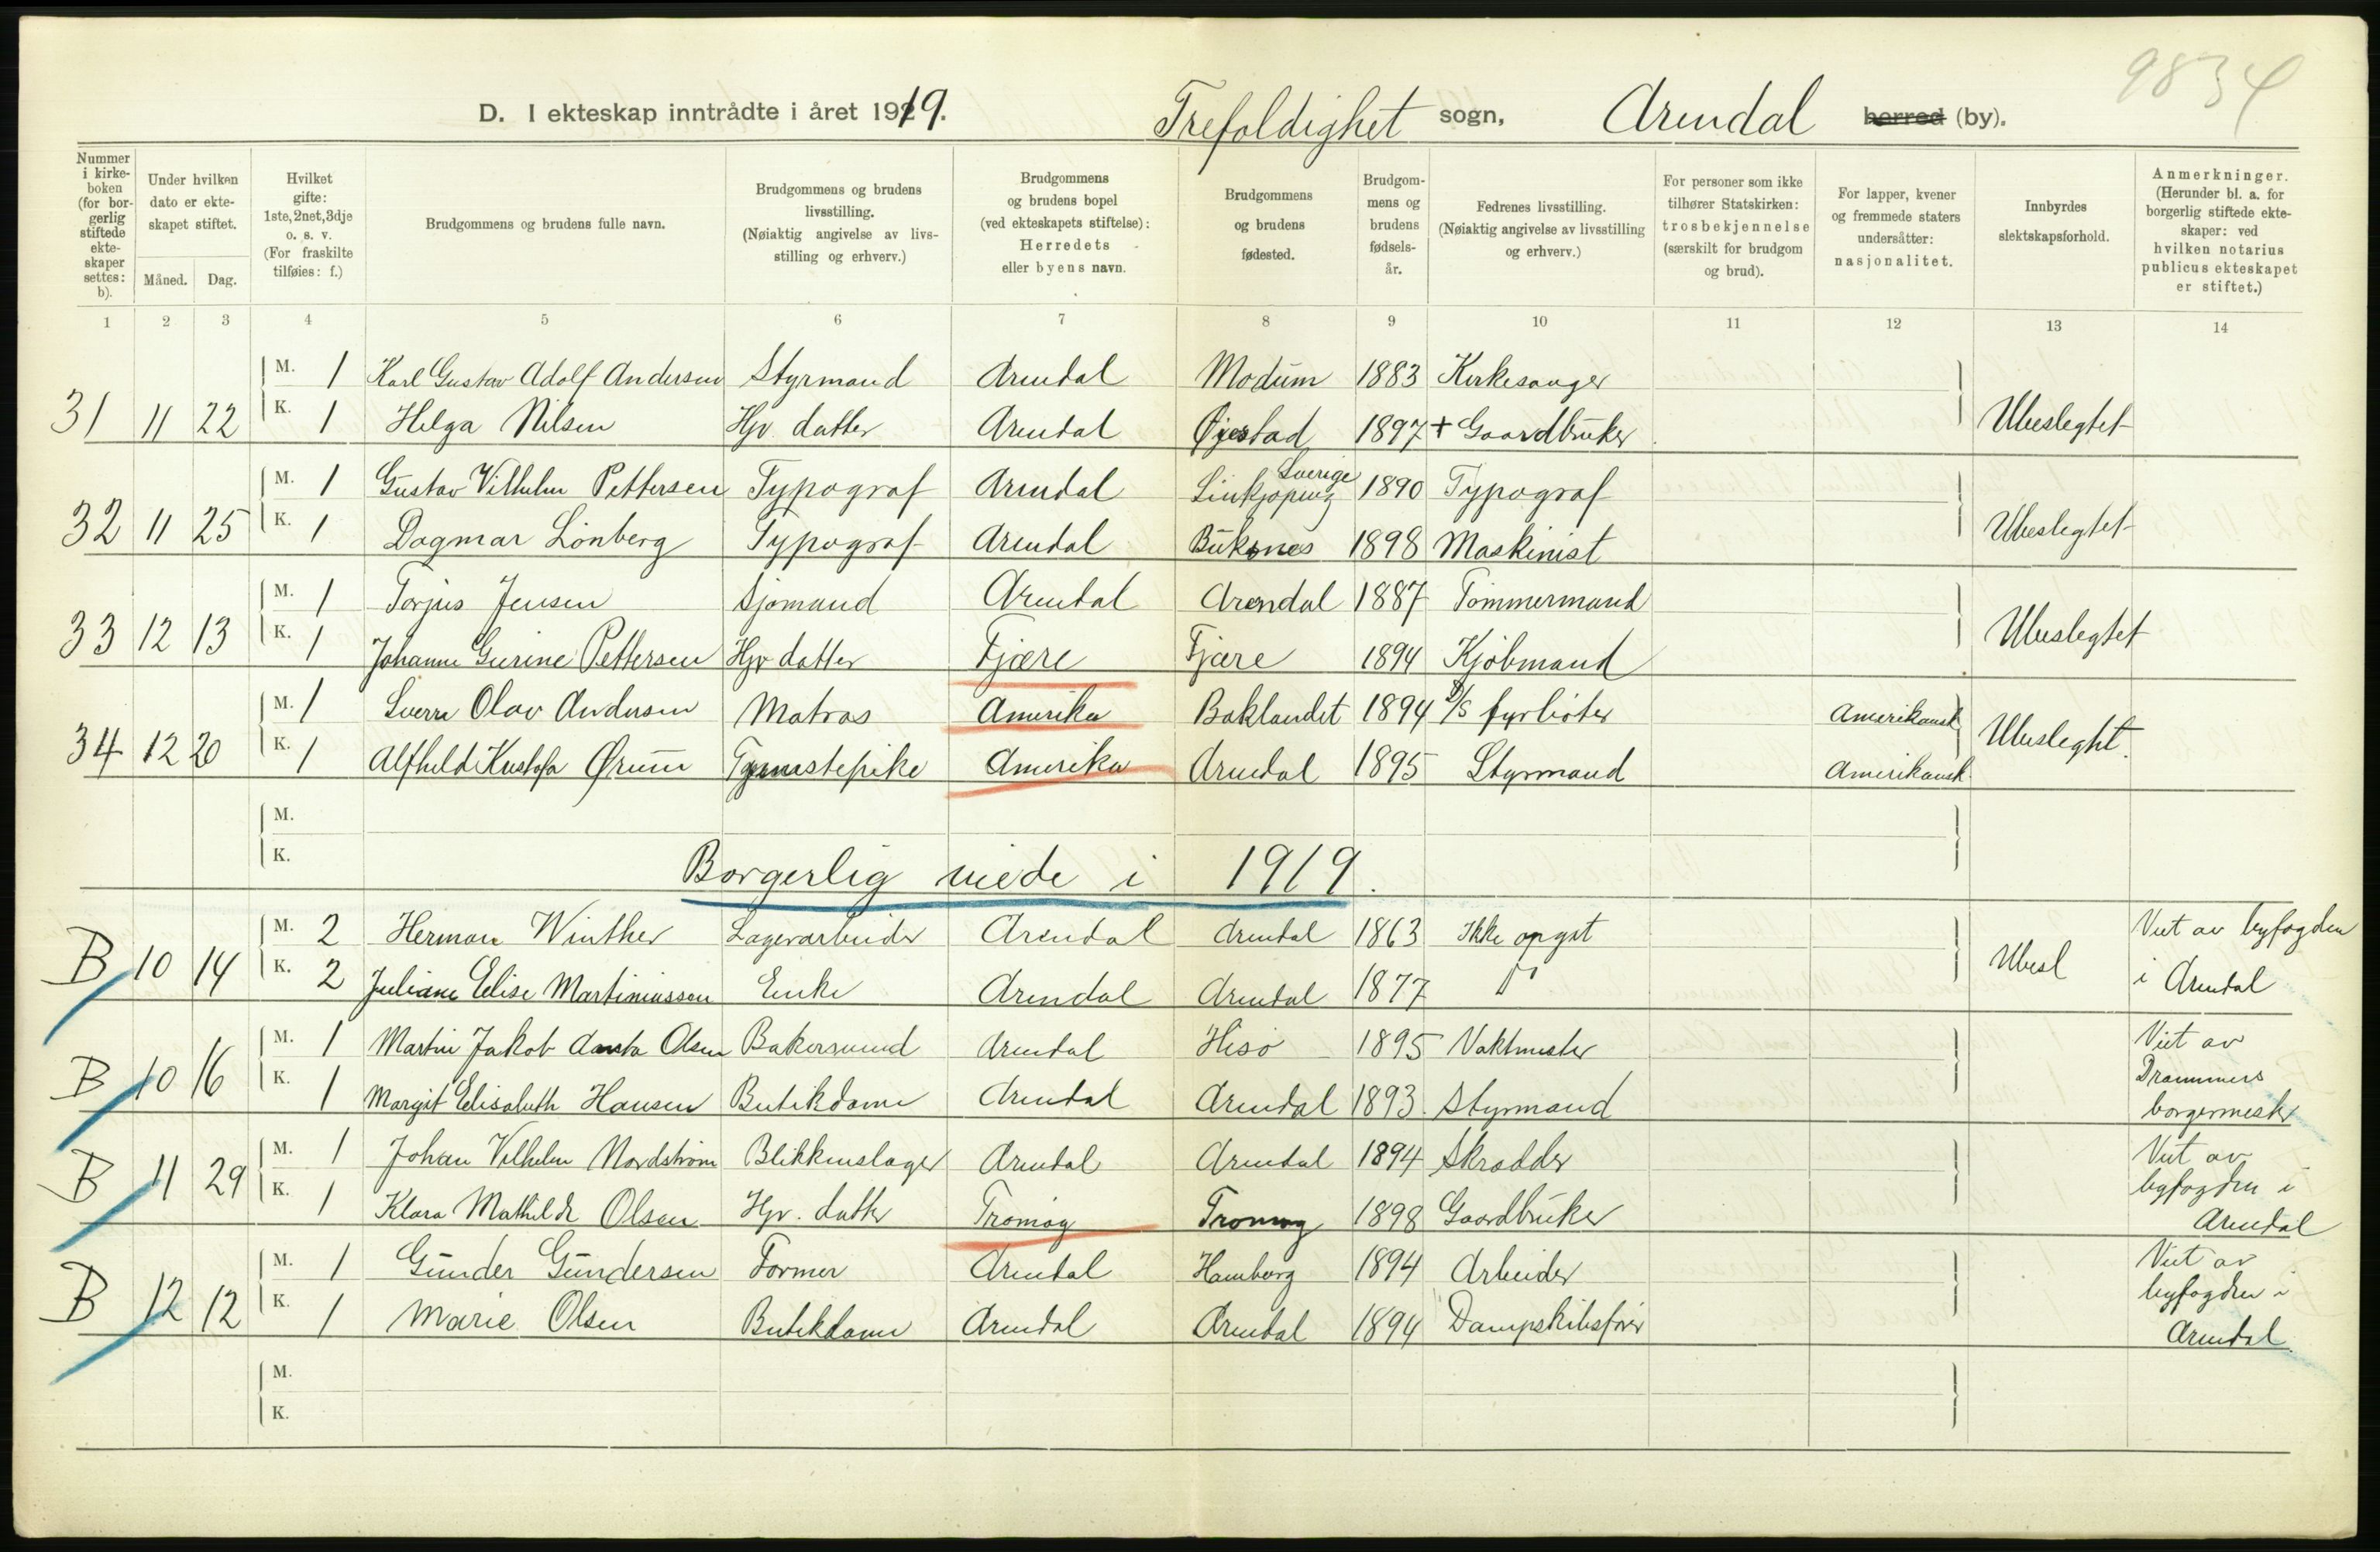 9834
D. I ekteskap inntrådte i året 1919. Trefoldighet sogn, Arendal herred (by).
Nummer i kirkeboken (for borgerlig stiftede ekteskaper settes: b).
Under hvilken dato er ekteskapet stiftet.
Måned. Dag.
Hvilket gifte: 1ste, 2net, 3dje o. s. v. (For fraskilte tilføies: f.)
Brudgommens og brudens fulle navn.
Brudgommens og brudens livsstilling. (Nøiaktig angivelse av livsstilling og erhverv.)
Brudgommens og brudens bopel (ved ekteskapets stiftelse): Herredets eller byens navn.
Brudgommens og brudens fødested.
Brudgommens og brudens fødselsår.
Fedrenes livsstilling. (Nøiaktig angivelse av livsstilling og erhverv.)
For personer som ikke tilhører Statskirken: trosbekjennelse (særskilt for brudgom og brud).
For lapper, kvener og fremmede staters undersåtter: nasjonalitet.
Innbyrdes slektskapsforhold.
Anmerkninger. (Herunder bl. a. for borgerlig stiftede ekteskaper: ved hvilken notarius publicus ekteskapet er stiftet.)
1 2 3 4 5 6 7 8 9 10 11 12 13 14
M. 1 Karl Gustav Adolf Andersen Styrmand Arendal Modum 1883 Kirkesanger
31 11 22 K. 1 Helga Nilsen Hjv. datter Arendal Øjestad 1897 + Gaardbruker Ubeslegtet
M. 1 Gustav Vilhelm Pettersen Typograf Arendal Linkjøping Sverige 1890 Typograf
32 11 25 K. 1 Dagmar Lønberg Typograf Arendal Buksnes 1898 Maskinist Ubeslegtet
M. 1 Torjus Jensen Sjømand Arendal Arendal 1887 Tømmermand
33 12 13 K. 1 Johanne Gurine Pettersen Hjv datter Fjære Fjære 1894 Kjøbmand Ubeslegtet
M. 1 Sverre Olav Andersen Matros Amerika Baklandet 1894 D/S fyrbøter Amerikansk
34 12 20 K. 1 Alfhild Kustofa Ørum Tjenestepike Amerika Arendal 1895 Styrmand Amerikansk Ubesleght.
M.
K.
Borgerlig viede i 1919.
M. 2 Herman Winther Lagerarbeider Arendal Arendal 1863 Ikke opgit Viet av byfogden
B 10 14 K. 2 Juliane Elise Martiniussen Enke Arendal Arendal 1877 Do Ubesl i Arendal
M. 1 Martin Jakob Olsen Bakersvend Arendal Hisø 1895 Vaktmester Viet av
B 10 16 K. 1 Margit Elisabeth Hansen Butikdame Arendal Arendal 1893 Styrmand Drammens borgermester
M. 1 Johan Vilhelm Nordstrøm Blikkenslager Arendal Arendal 1894 Skrædder Viet av
B 11 29 K. 1 Klara Mathilde Olsen Hjv. datter Tromøy Tromøy 1898 Gaardbruker byfogden i Arendal
M. 1 Gunder Gundersen Former Arendal Hamborg 1894 Arbeider Viet av
B 12 12 K. 1 Marie Olsen Butikdame Arendal Arendal 1894 Dampskibsfører byfogden i Arendal.
M.
K.